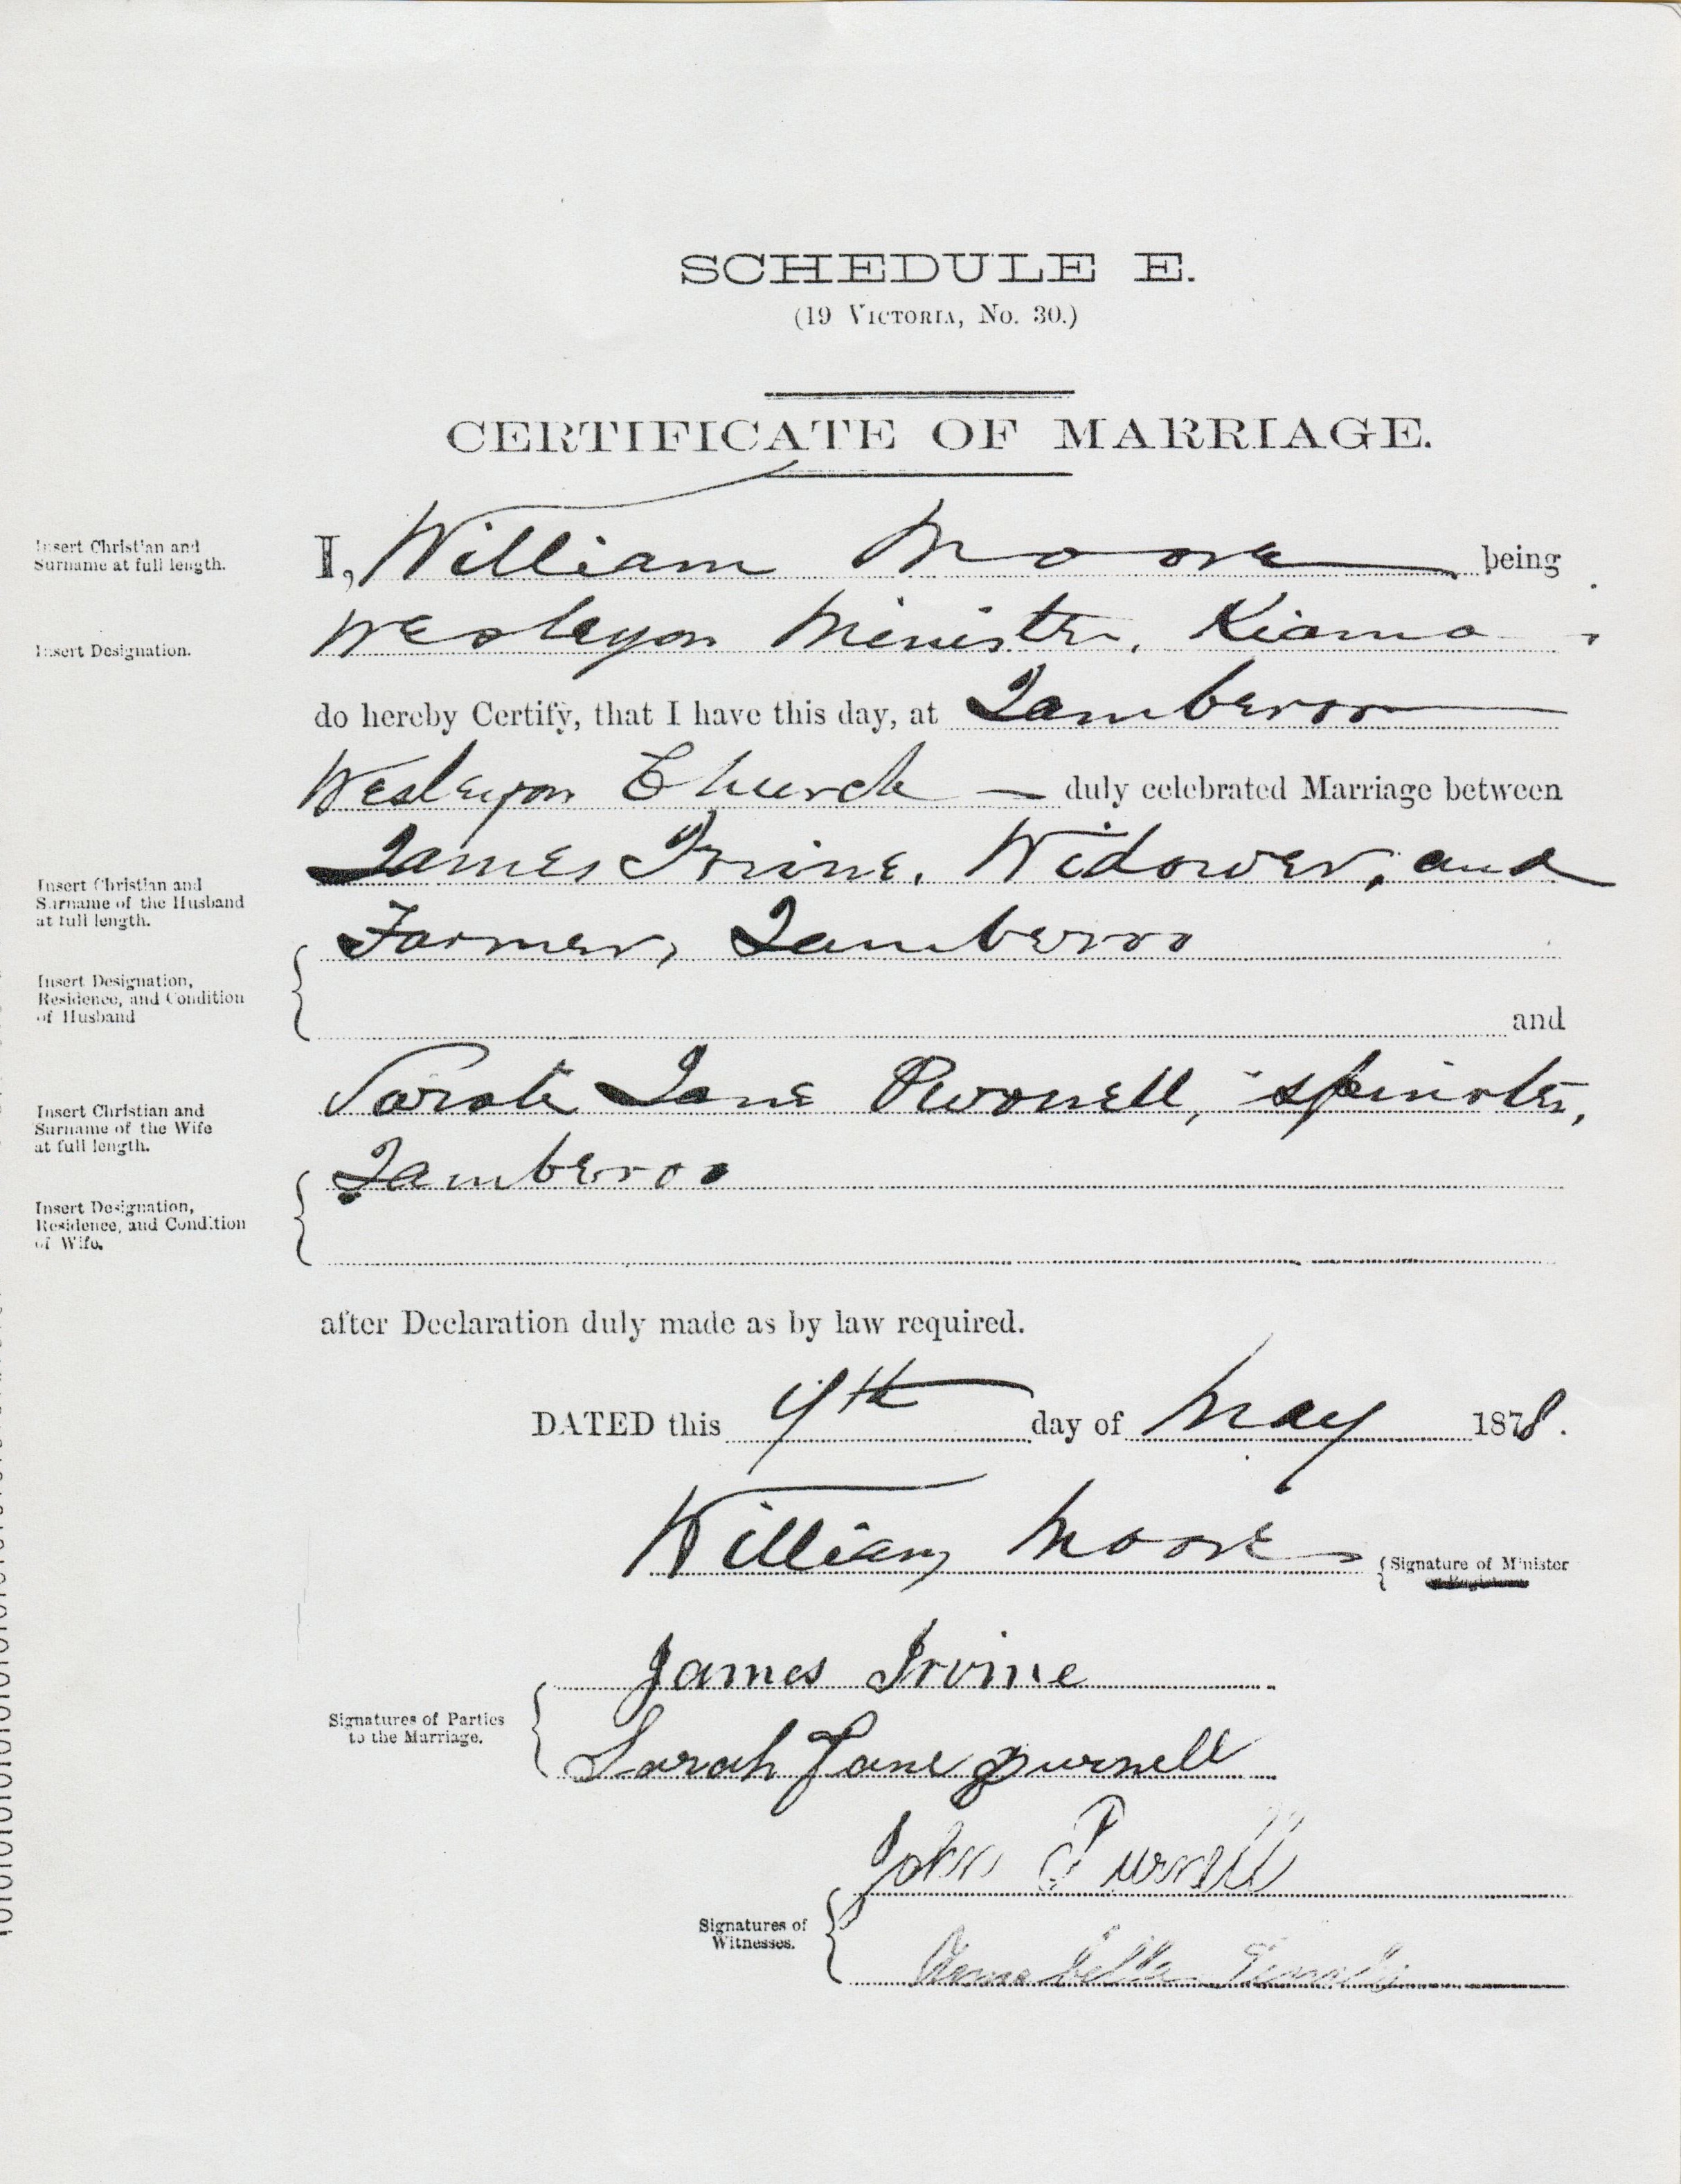 SCHEDULE E.
(19 VICTORIA, No. 30.)
CERTIFICATE OF MARRIAGE.
Insert Christian and
Surname at full length.
I, William Moore being
Insert Designation.
Wesleyan Minister, Kiama
do hereby Certify, that I have this day, at Jamberoo
Wesleyan Church — duly celebrated Marriage between
Insert Christian and
Surname of the Husband
at full length.
James Irvine, Widower, and
Farmer, Jamberoo
Insert Designation,
Residence, and Condition
of Husband
and
Insert Christian and
Surname of the Wife
at full length.
Sarah Jane Purnell, spinster,
Jamberoo
Insert Designation,
Residence, and Condition
of Wife.
after Declaration duly made as by law required.
DATED this 9th day of May 1878.
William Moore
Signature of Minister
James Irvine
Signatures of Parties
to the Marriage.
Sarah Jane Purnell
John Purnell
Signatures of
Witnesses.